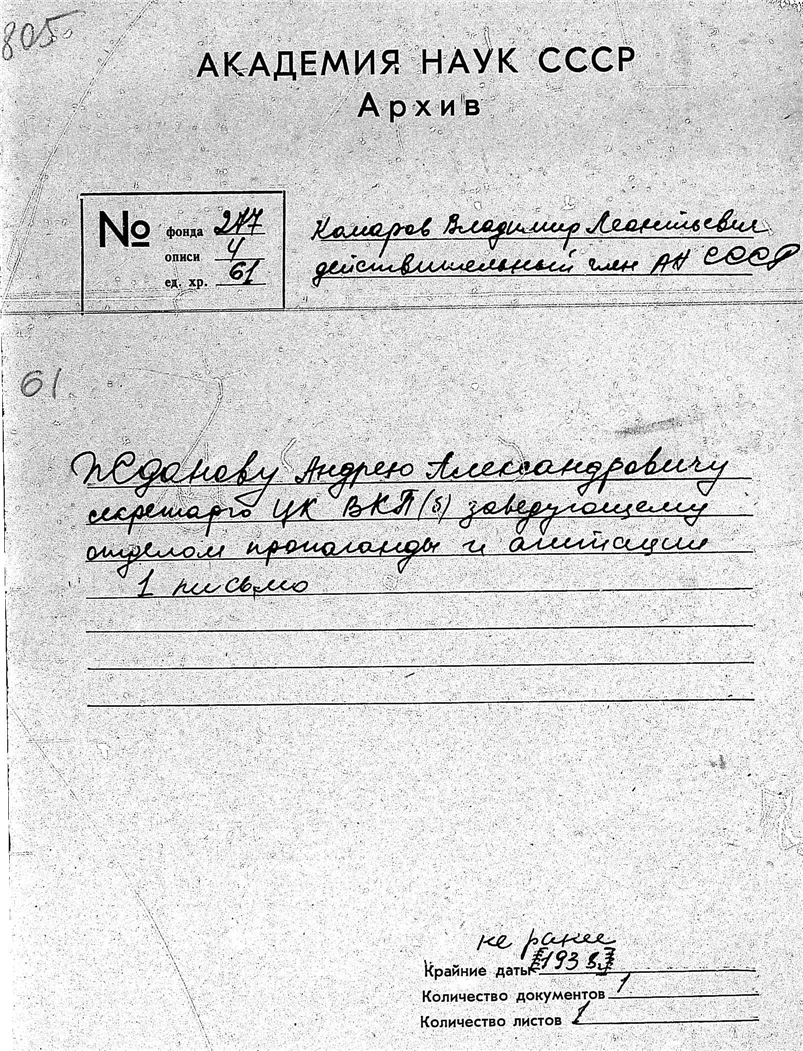 805.
АКАДЕМИЯ НАУК СССР
Архив
№ фонда 277
описи 4
ед. хр. 61
Комаров Владимир Леонтьевич
действительный член АН СССР
61
Жданову Андрею Александровичу
секретарю ЦК ВКП(б) заведующему
отделом пропаганды и агитации
1 письмо
не ранее
Крайние даты
Количество документов 1
Количество листов 1